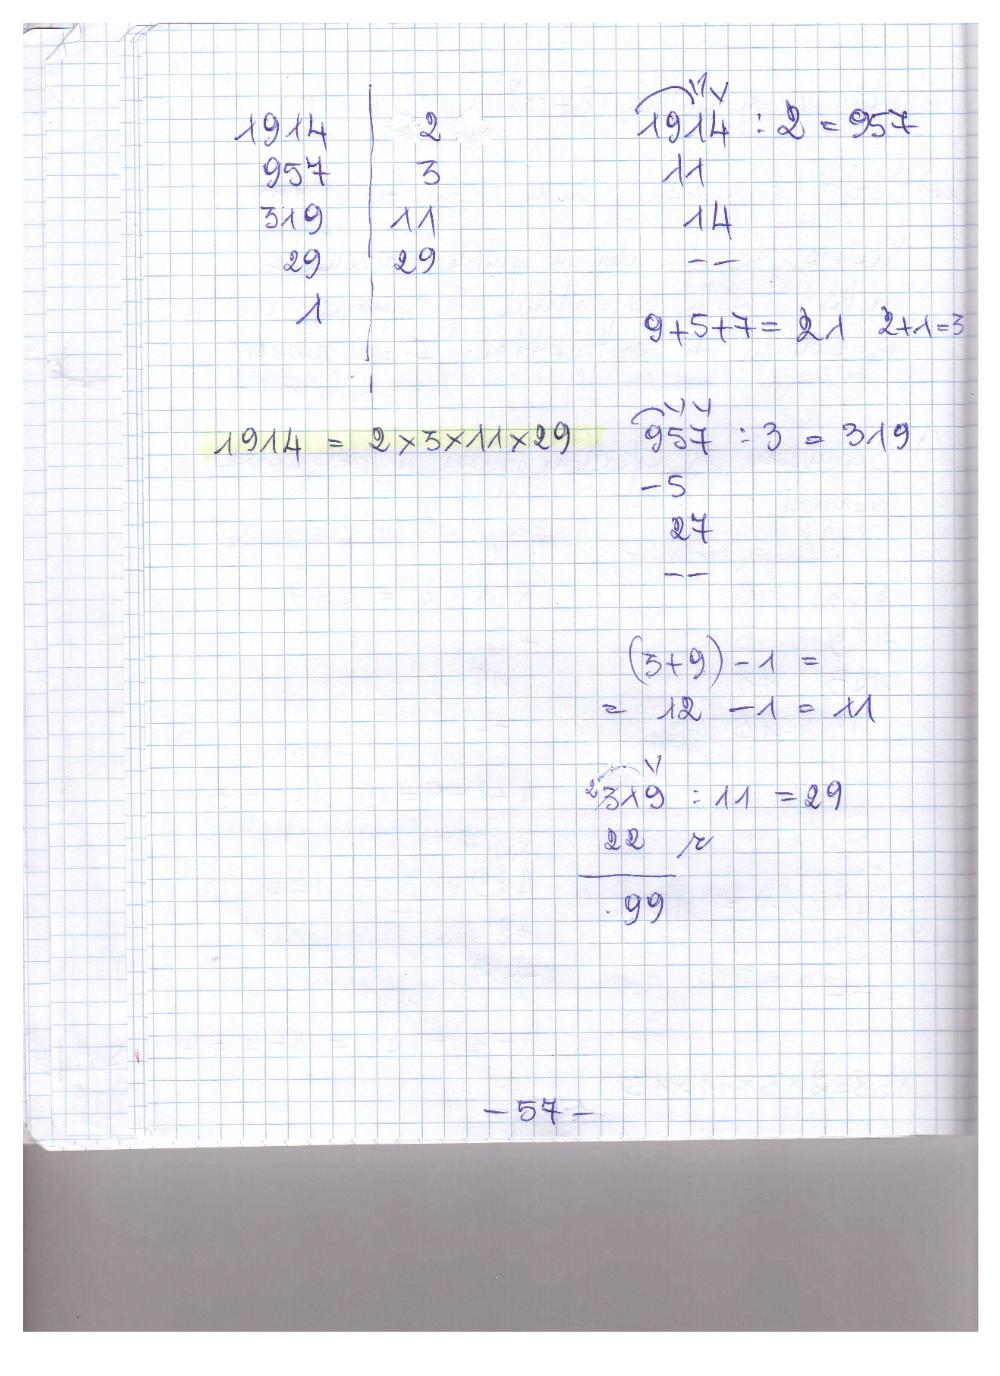 1914 | 2
957 | 3
319 | 11
29 | 29
1 |
1914 = 2×3×11×29
1914 : 2 = 957
11
14
--
9+5+7= 21 2+1=3
957 : 3 = 319
-5
27
--
(3+9) -1 =
= 12 -1 = 11
2319 : 11 = 29
22 r
.99
- 57 -